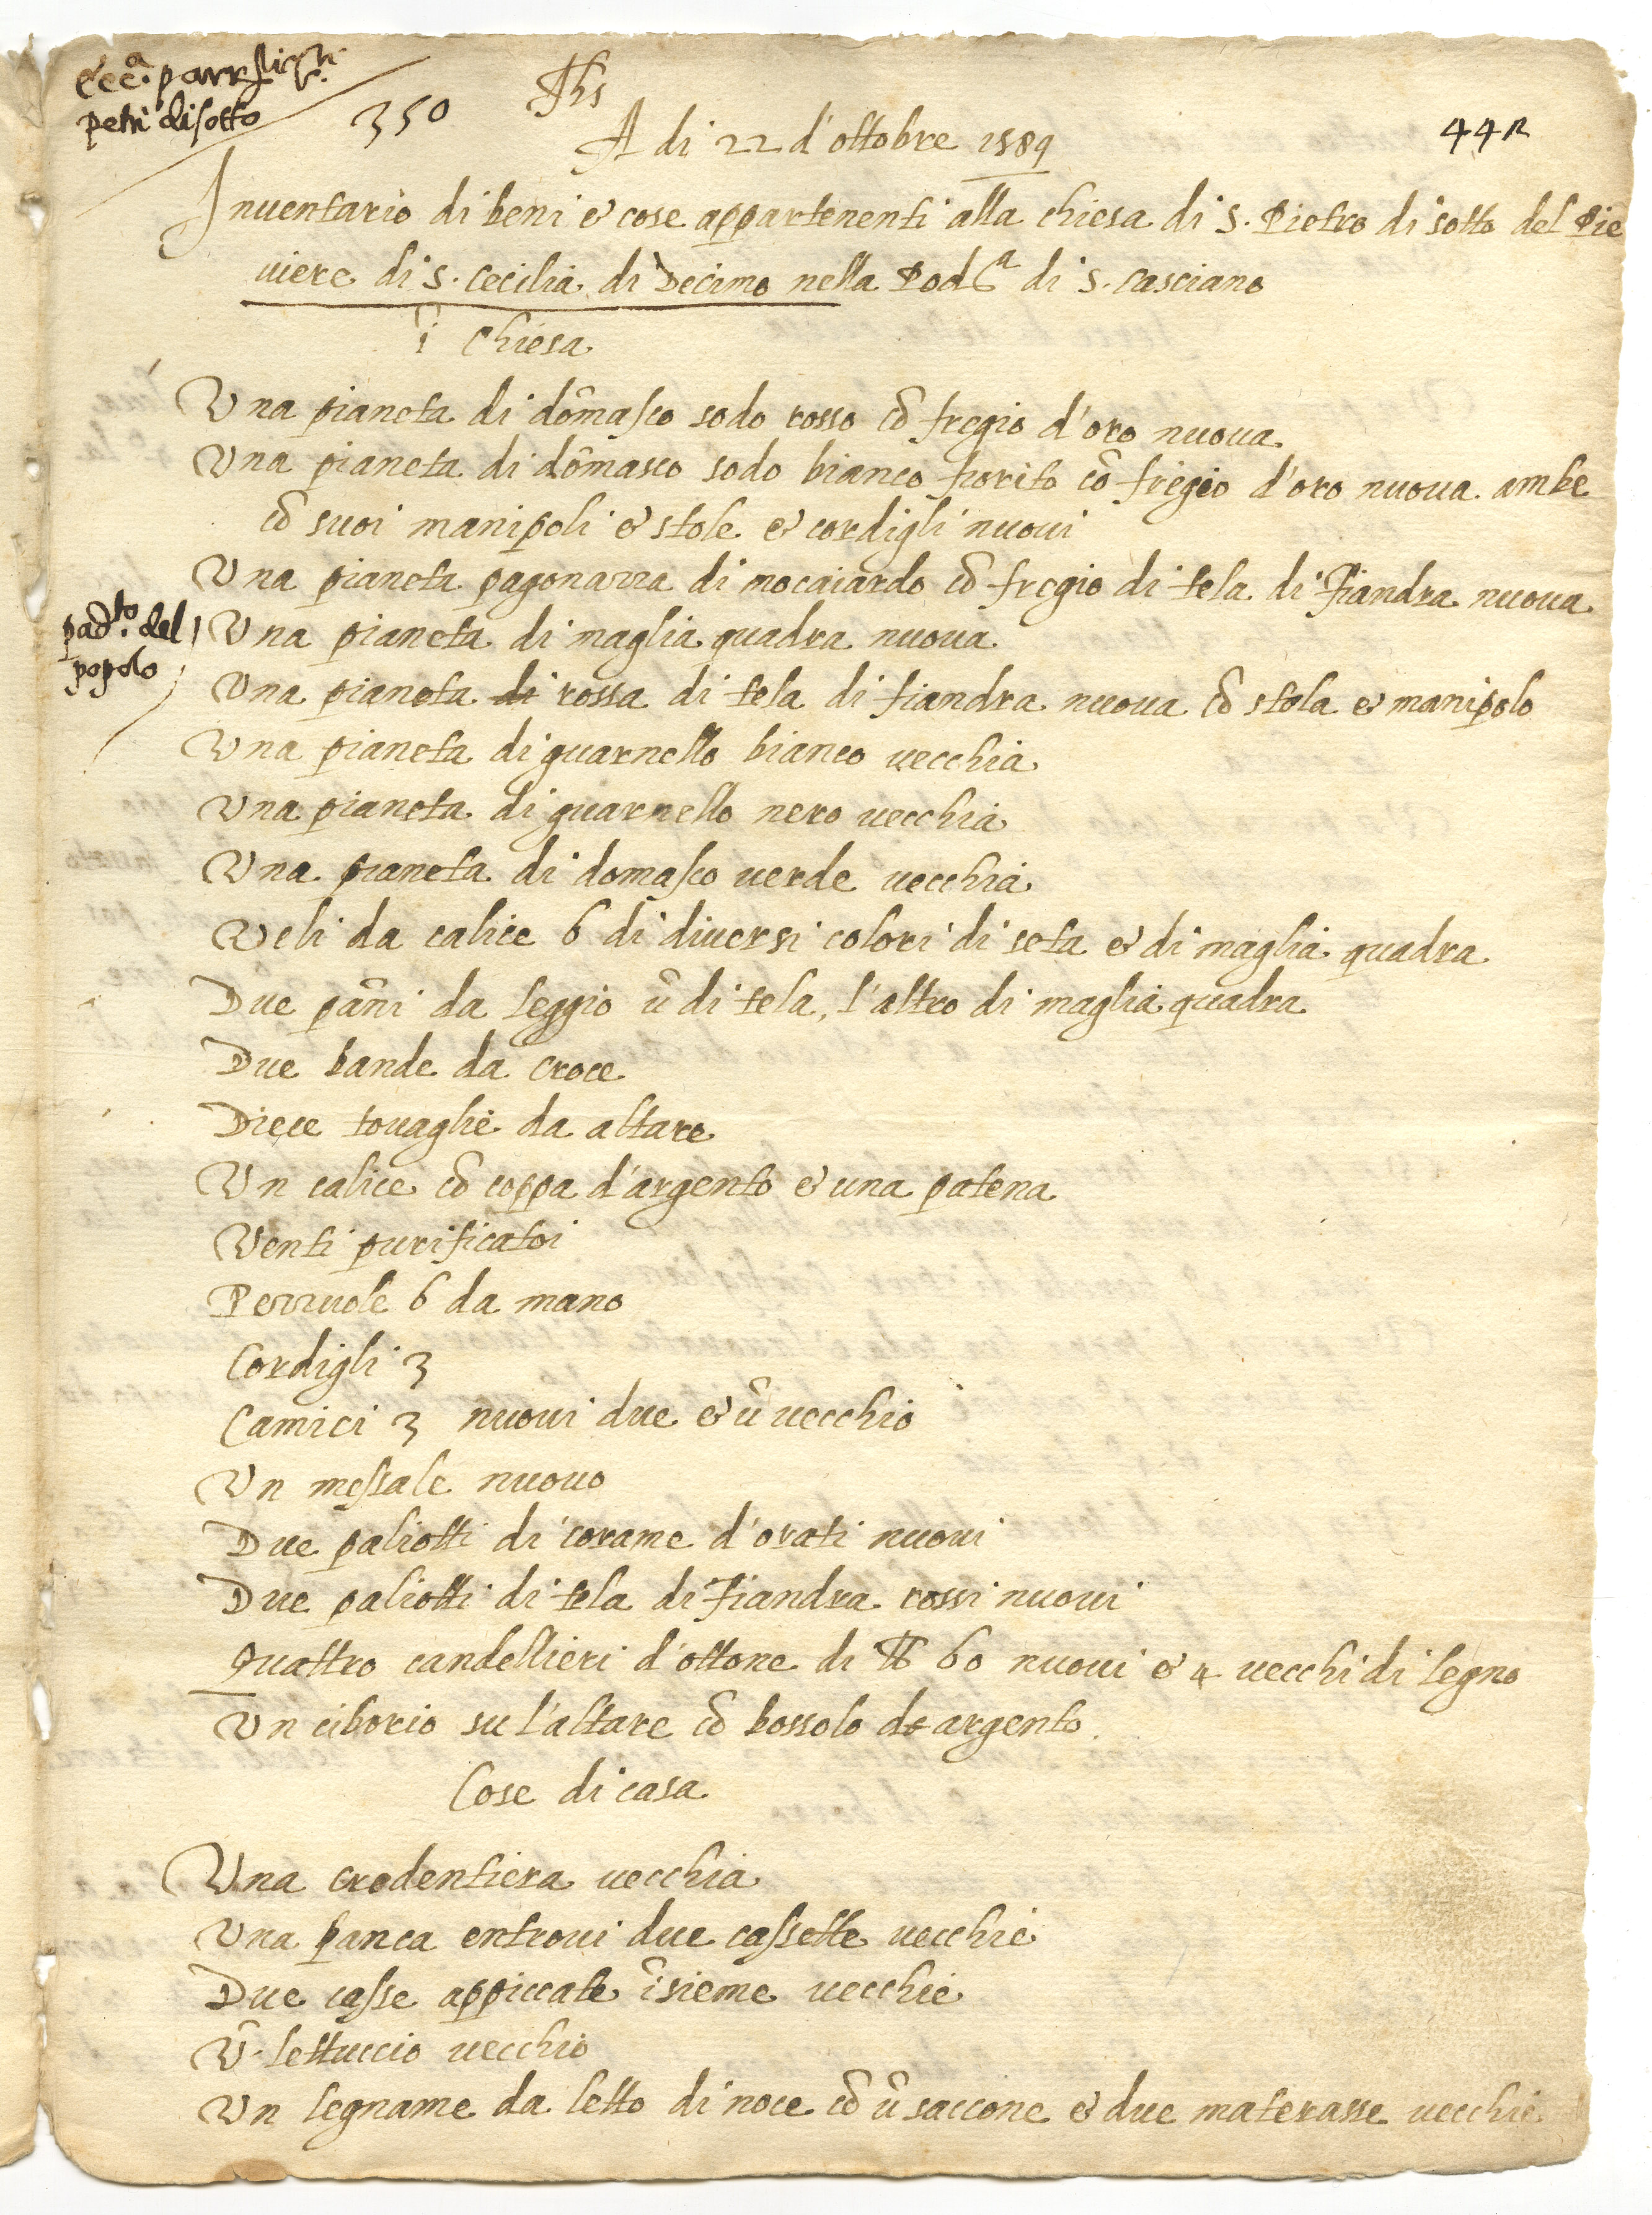 Ecc.ª parr.lis S.ti
petri disotto
350
Jhs
44r
A di 22 d'ottobre 1589
Inuentario di beni & cose appartenenti alla chiesa di S. Pietro di sotto del Pie
uiere di S. Cecilia di Decimo nella Pod.ª di S. Casciano
ĩ Chiesa
Una pianeta di dõmasco sodo rosso cõ fregio d'oro nuoua
Una pianeta di dõmasco sodo bianco fiorito cõ fregio d'oro nuoua ambe
cõ suoi manipoli & stole & cordigli nuoui
Una pianeta pagonazza di mocaiardo cõ fregio di tela di Fiandra nuoua
pad.to del
popolo
Una pianeta di maglia quadra nuoua
Una pianeta di rossa di tela di fiandra nuoua cõ stola & manipolo
Una pianeta di guarnello bianco uecchia
Una pianeta di guarnello nero uecchia
Una pianeta di domasco uerde uecchia
Veli da calice 6 di diuersi colori di seta & di maglia quadra
Due pãni da leggio ũ di tela, l'altro di maglia quadra
Due bande da croce
Diece touaglie da altare
Un calice cõ coppa d'argento & una patena
Venti purificatoi
Pezzuole 6 da mano
Cordigli 3
Camici 3 nuoui due & ũ uecchio
Un messale nuouo
Due paliotti di corame d'orati nuoui
Due paliotti di tela di Fiandra rossi nuoui
Quattro candellieri d'ottone di ℔ 60 nuoui & 4 uecchi di legno
Un ciborio su l'altare cõ bossolo de argento
Cose di casa
Una credentiera uecchia
Una panca entroui due cassette uecchie
Due casse appiccate ĩsieme uecchie
Ũ lettuccio uecchio
Un legname da letto di noce cõ ũ saccone & due materasse uecchie